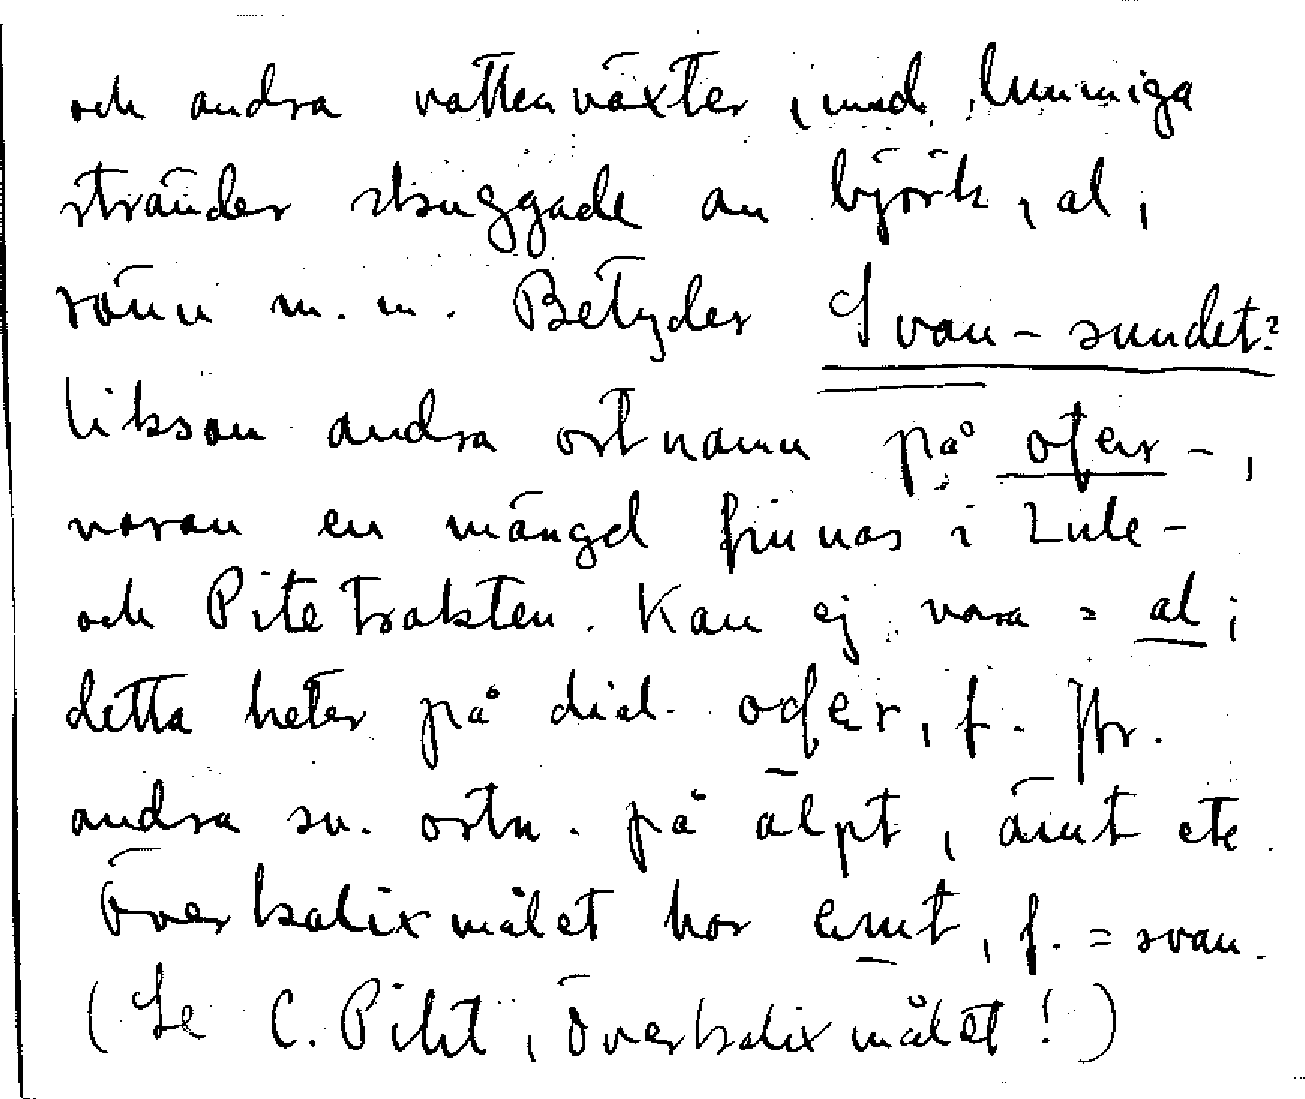 och andra vattenväxter, med lummiga
stränder skuggade av björk, al,
rönn m.m. Betyder Svan-sundet?
liksom andra ortnamn på ofer-,
varav en mängd finnas i Lule-
och Pitetrakten. Kan ej vara = al;
detta heter på dial. oḍer, f. Jfr.
andra sv. ortn. på älpt, ämt etc.
Överkalixmålet har emt, f. = svan.
(Se C. Pihl, Överkalixmålet!)